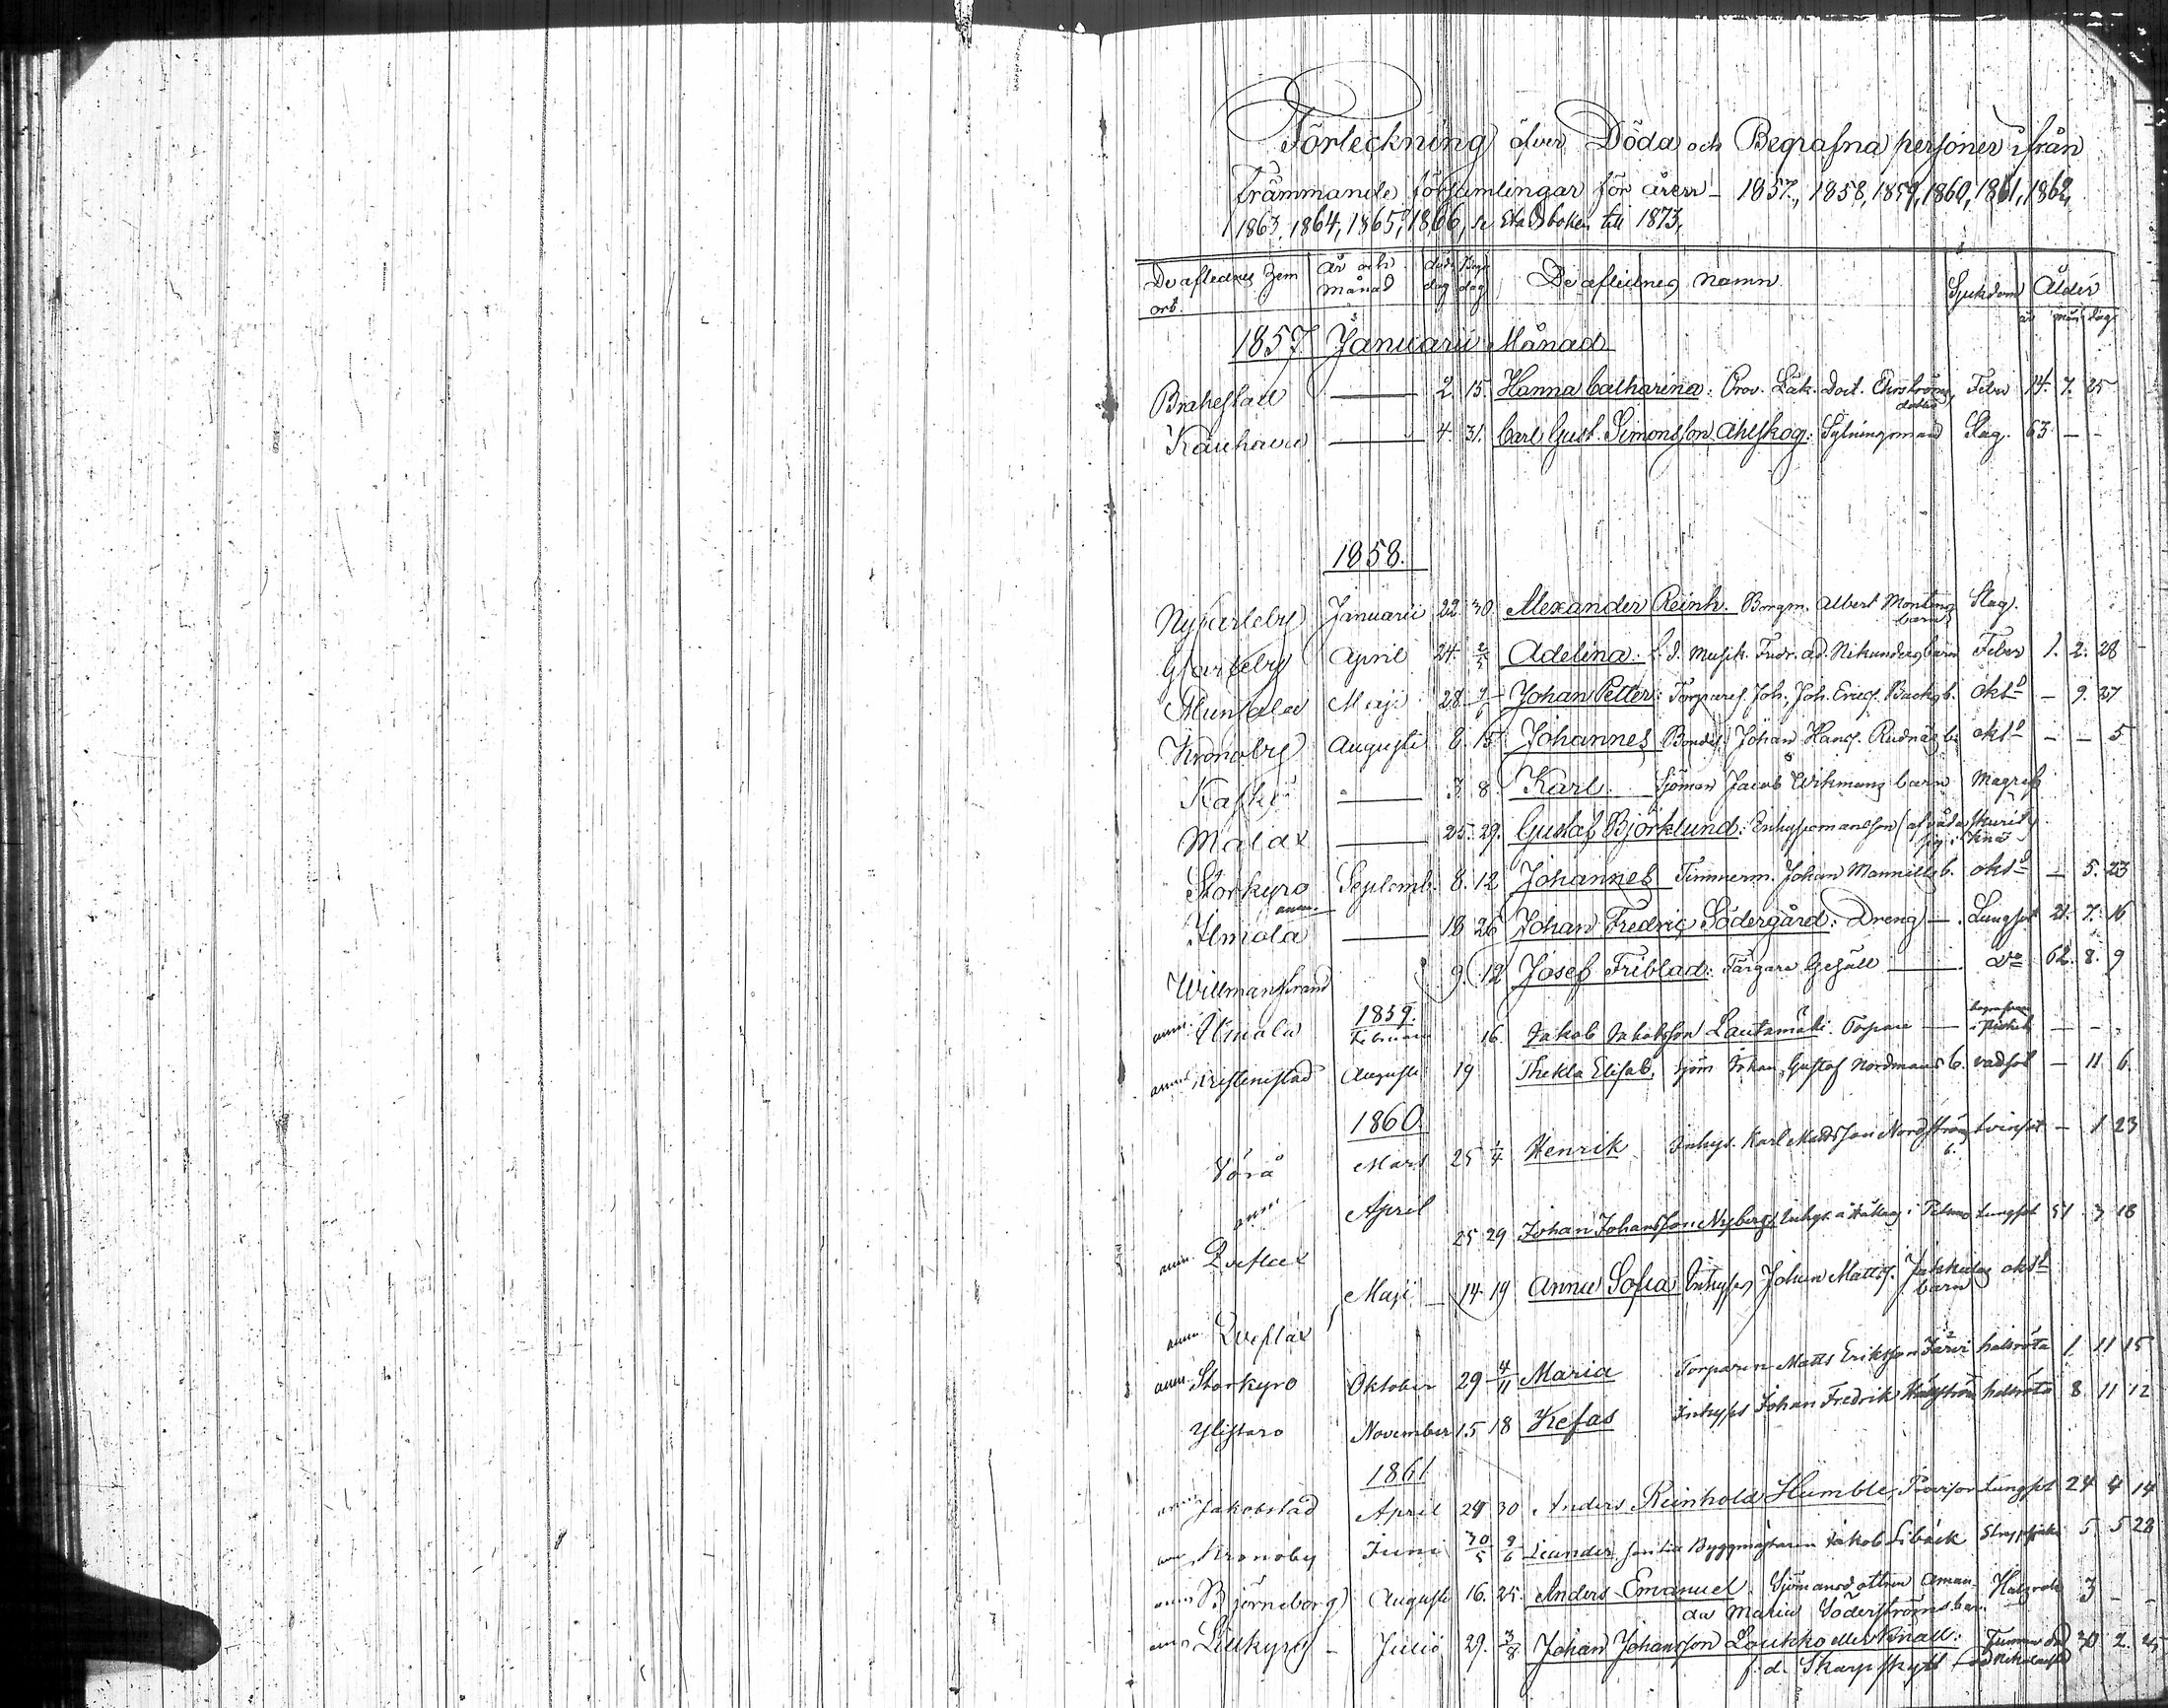 Förteckning öfver Döda och Begrafna personer ifrån
främmande församlingar för åren 1857, 1858, 1859, 1860, 1861, 1862,
1863, 1864, 1865, 1866, se Stadsboken till 1873.
De aflednes hem ort. År och månad död dag Begr dag De aflidnes namn Sjukdom Ålder
år mån dag
1857 Januarii Månad
Brahestad — 2 15 Hanna Catharina: Prov. Läk. Doct. dotter Feber 14. 7. 25
Kauhava — 4. 31. Carl Gust. Simonsson Ahlskog: Slag. 63 – –
1858.
Nykarleby Januarii 22 30 Alexander Reinh. Borgm. Albert Montins barn Slag.
April 24. 2/5 Adelina: f.d. Musik. barn Feber 1. 2. 28
Munsala Maji 28 Johan Petter: Torpares Joh. Joh. Ericss. Backs b. okd – 9. 27
Kronoby Augusti 8. 15 Johannes Bondes Johan Hanss. Rudnäs b. okd – – 5
Kaskö — 3. 8. Karl. Sjöman Jacob Wikmans barn Magref
Malax — 25. 29. Gustaf Björklund: (af våda skurit sig i knä)
Storkyro Septemb. 8. 12 Johannes Timmerm. Johan Mannills b. okd – 5. 23
Ilmola anm. — 18 26 Johan Fredric Södergård: Dreng — Lungsot 21. 7. 16
Willmanstrand 9. 12 Josef Friblad: Färgare Gesäll — do 62. 8. 9
1859.
anm. Ilmola Februari 16. Jakob Jakobsson Lautamäki. Torpare — – – –
anm. Kristinestad Augusti 19 Thekla Elisab. Sjöm Johan Gustaf Nordmans b. vadsot – 11 6.
1860
Vörå Mars 25 1/4 Henrik Inhys. Karl Mattsson Nordströms b. tvinsot – 1 23
anm. April
25 29 Johan Johansson Nyberg, Inhys. i Petsmo Lungsot 51 3 18
anm. Qveflax
Maji 14. 19 Anna Sofia Inhyses Johan Mattss. barn okd
anm. Qveflax
anm. Storkyro Oktober 29 4/11 Maria Torparen Matts Eriksson Järvi halsröta 1 11 15
Ylistaro November 15 18 Kefas Inhyses Johan Fredrik halsröta 8 11 12
1861
anm. Jakobstad April 24 30 Anders Reinhold Humble, Provisor Lungsot 24 4 14
anm. Kronoby Juni 30/5 9/6 Leander son till Byggmästaren Jakob Sibäck Strypsjuka 5 5 28
anm. Björneborg Augusti 16. 25. Anders Emanuel. Sjömansdottren Aman-
da Maria Söderströms barn. Halsröta 3 – –
anm. Lillkyro – Julii 29. 3/8 Johan Johansson Loukko eller Knall:
f.d. Skarpskytt 30 2. 25